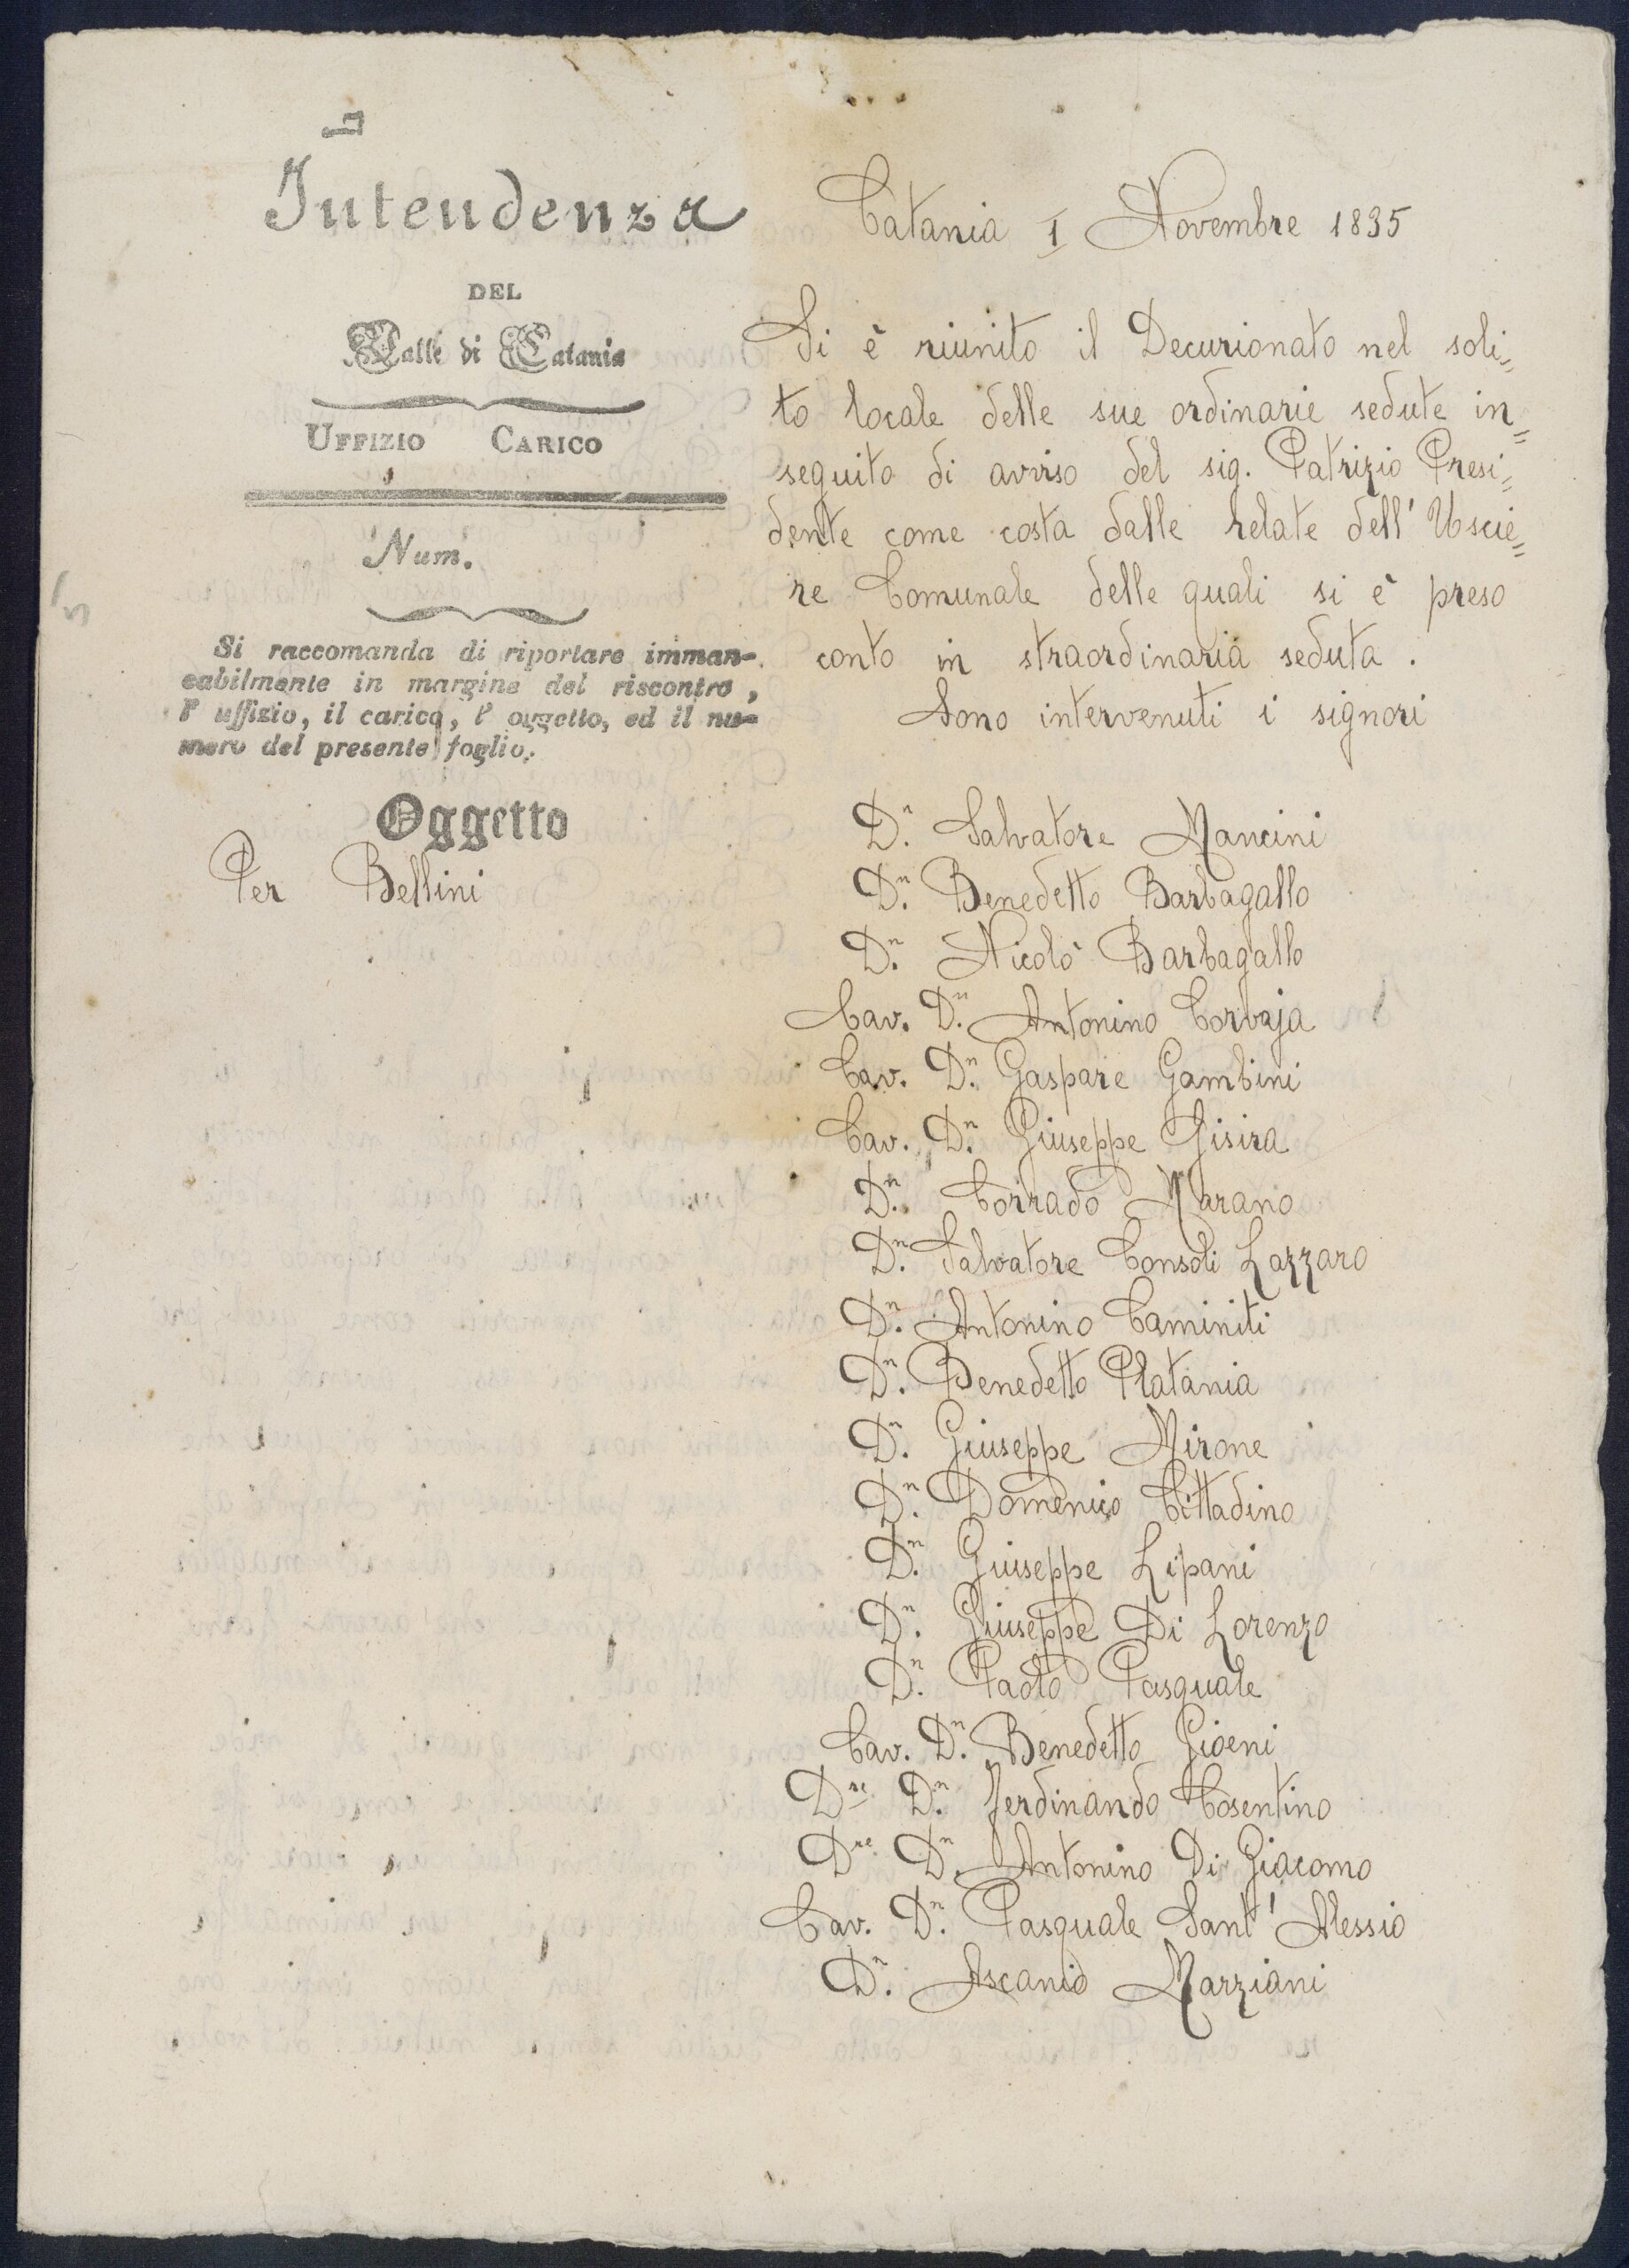 Intendenza
DEL
Valle di Catania
UFFIZIO CARICO
Num.
Si raccomanda di riportare imman-
cabilmente in margine del riscontro,
l' uffizio, il carico, l' oggetto, ed il nu-
mero del presente foglio.
Oggetto
Per Bellini
Catania 1 Novembre 1835
Si è riunito il Decurionato nel soli=
to locale delle sue ordinarie sedute in=
seguito di avviso del sig. Patrizio Presi=
dente come costa dalle relate dell' Uscie=
re Comunale delle quali si è preso
conto in straordinaria seduta.
Sono intervenuti i signori
D.n Salvatore Mancini
D.n Benedetto Barbagallo
D.n Nicolò Barbagallo
Cav. D.n Antonino Corvaja
Cav. D.n Gaspare Gambini
Cav. D.n Giuseppe Gisira
D.n Corrado Marano
D.n Salvatore Consoli Lazzaro
D.n Antonino Caminiti
D.n Benedetto Platania
D.n Giuseppe Mirone
D.n Domenico Cittadino
D.n Giuseppe Lipani
D.n Giuseppe Di Lorenzo
D.n Paolo Pasquale
Cav. D.n Benedetto Gioeni
D.re D.n Ferdinando Cosentino
D.re D.n Antonino Di Giacomo
Cav. D.n Pasquale Sant' Alessio
D.n Ascanio Marziani